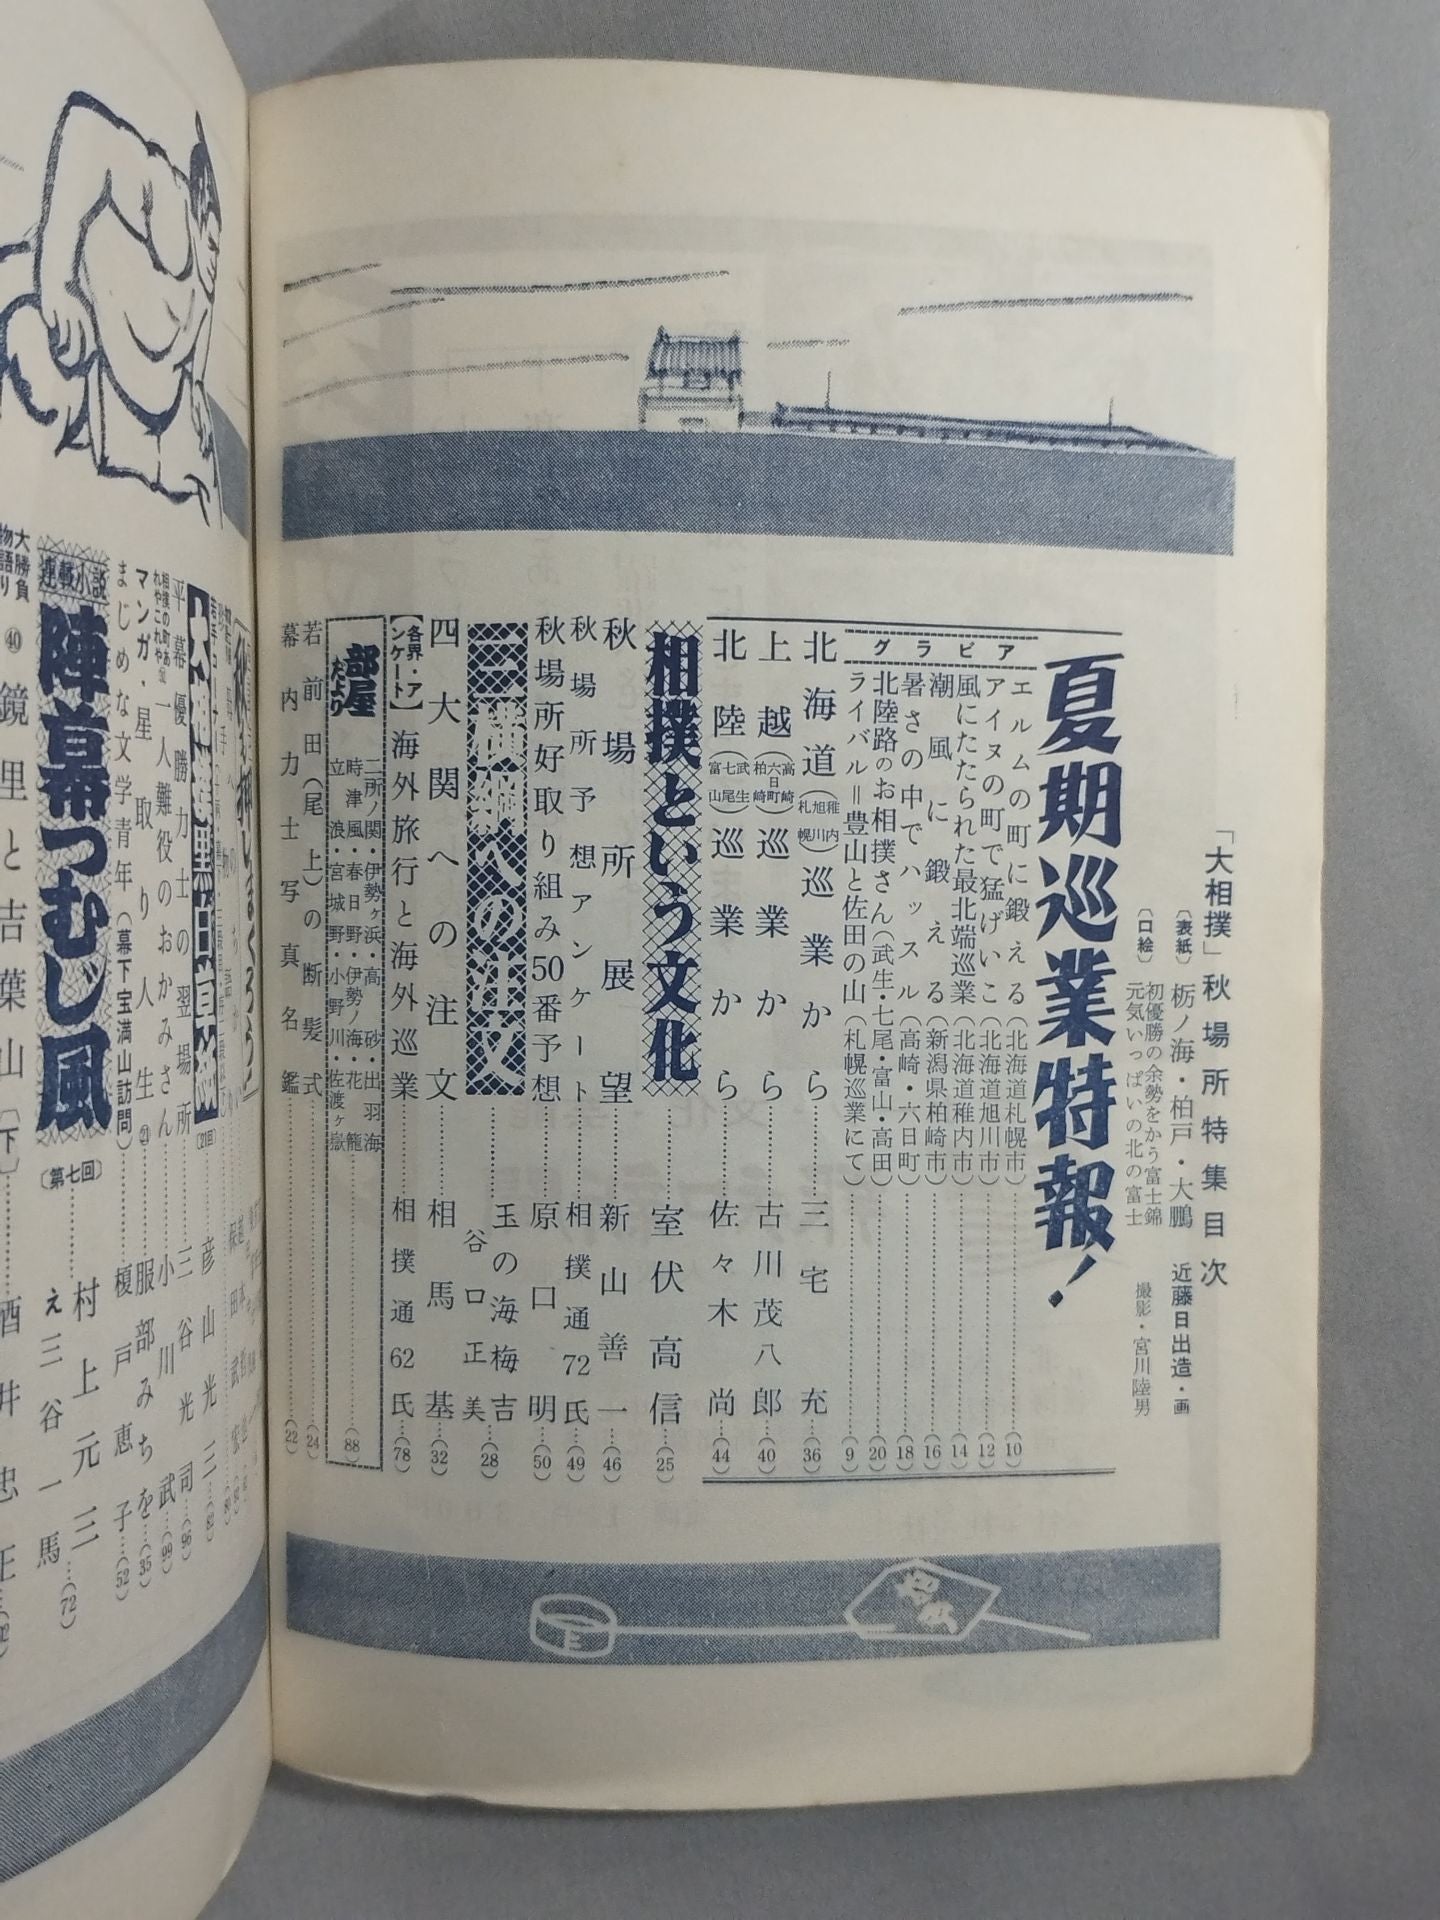 「大相撲」秋場所特集目次
〔表紙〕栃ノ海・柏戸・大鵬 近藤日出造・画
〔口絵〕初優勝の余勢をかう富士錦
元気いっぱいの北の富士 撮影・宮川陸男
夏期巡業特報!
グラビア
エルムの町に鍛える(北海道札幌市)……(10)
アイヌの町で猛げいこ(北海道旭川市)……(12)
風にたたられた最北端巡業(北海道稚内市)……(14)
潮風に鍛える(新潟県柏崎市)……(16)
暑さの中でハッスル(高崎・六日町)……(18)
北陸路のお相撲さん(武生・七尾・富山・高田)……(20)
ライバル=豊山と佐田の山(札幌巡業にて)……(9)
北海道(稚内旭川札幌)巡業から……三宅充……(36)
上越(高崎六日町柏崎)巡業から……古川茂八郎……(40)
北陸(武生七尾富山)巡業から……佐々木尚……(44)
相撲という文化……室伏高信……(25)
秋場所展望……新山善一……(46)
秋場所予想アンケート……相撲通72氏……(49)
秋場所好取り組み50番予想……原口明……(50)
三横綱への注文……玉の海梅吉
谷口正美……(28)
四大関への注文……相馬基……(32)
【各界・アンケート】海外旅行と海外巡業……相撲通62氏……(78)
部屋だより
二所ノ関・伊勢ヶ浜・高砂・出羽海
時津風・春日野・伊勢ノ海・花籠
立浪・宮城野・小野川・佐渡ヶ嶽……(88)
若前田(尾上)の断髪式……(24)
幕内力士写真名鑑……(22)
平幕優勝力士の翌場所……三谷光司……(96)
一人難役のおかみさん……小川武……(99)
マンガ・星取り人生㉑……服部みちを……(35)
まじめな文学青年(幕下宝満山訪問)……榎戸恵子……(52)
連載小説
陣幕つむじ風〔第七回〕……村上元三
え三谷一馬……(72)
大勝負物語り㊵鏡里と吉葉山〔下〕……酒井忠正